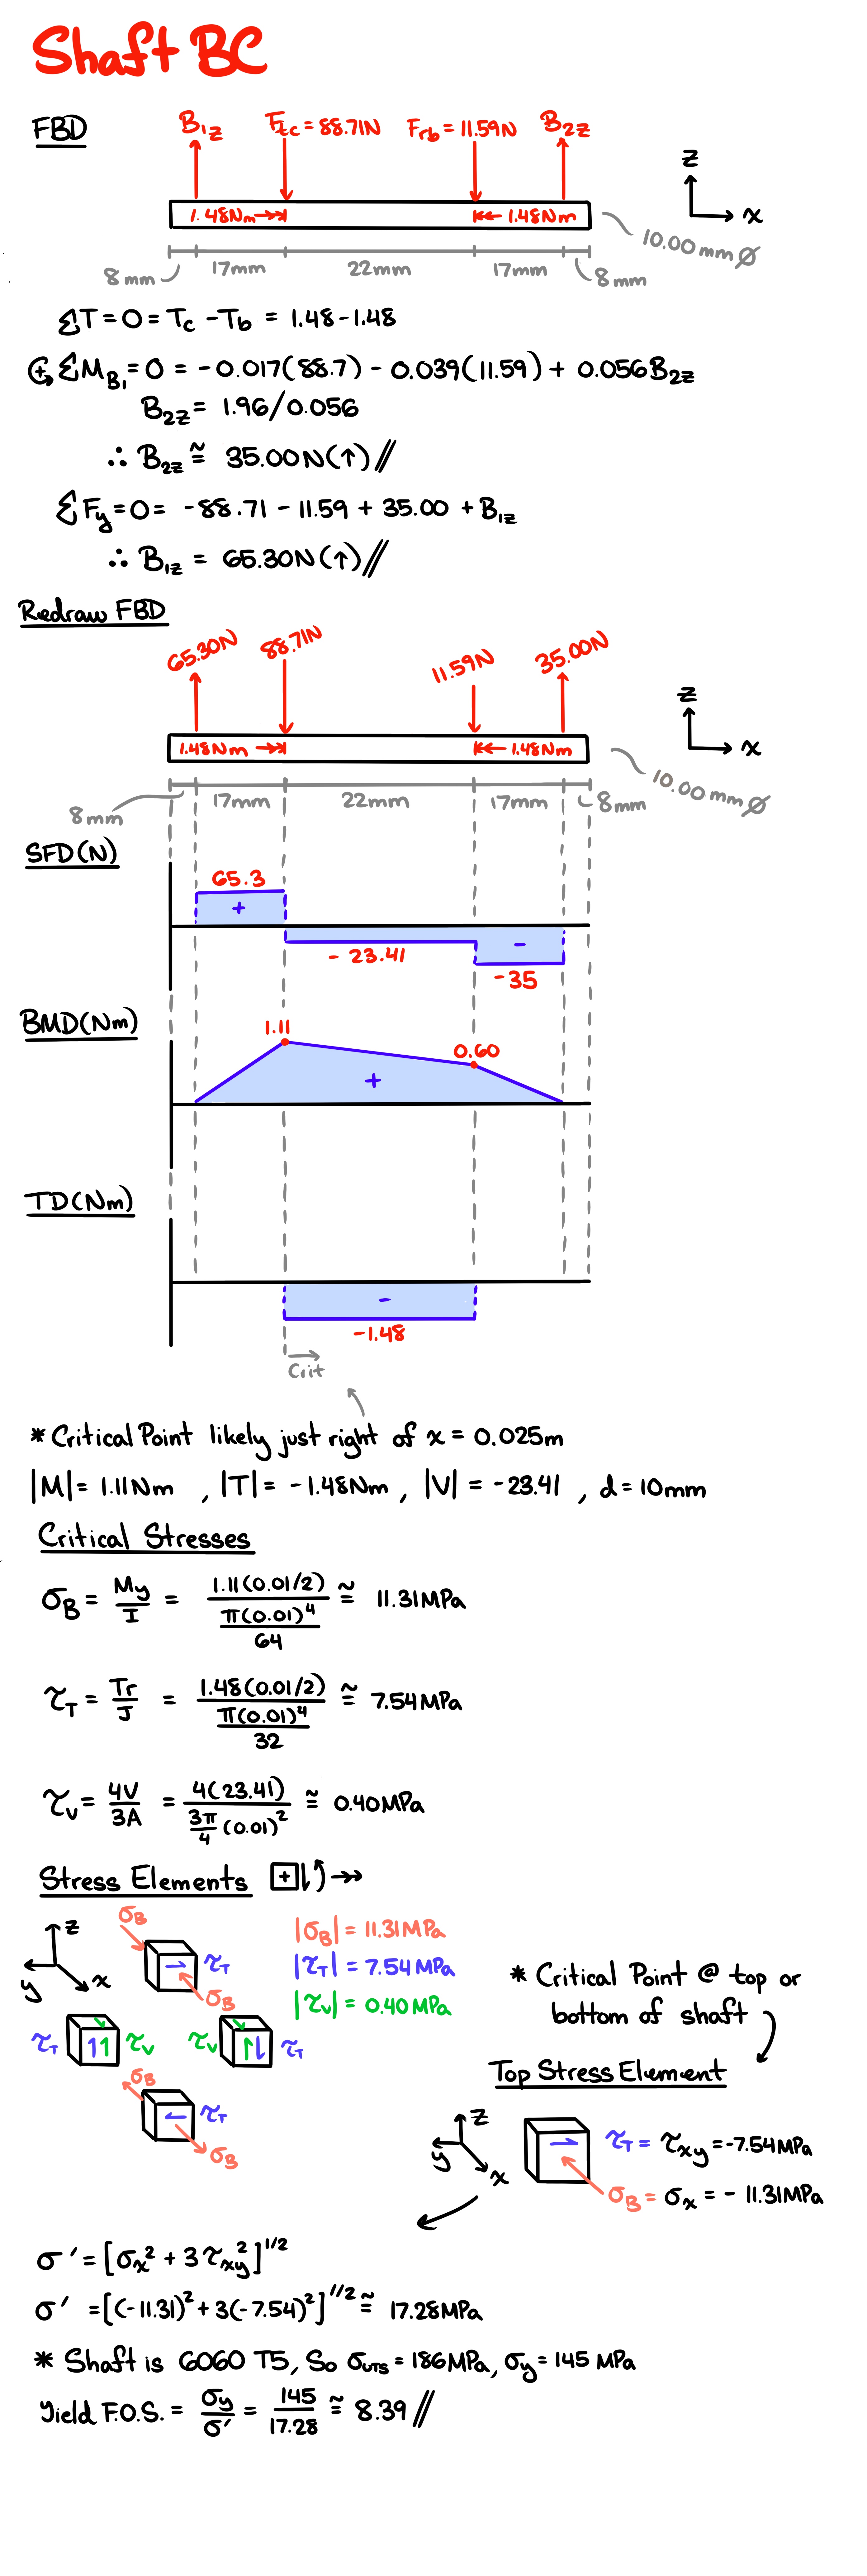 Shaft BC
FBD
B₁z Ftc = 88.71N Frb = 11.59N B₂z
z
1.48Nm 1.48Nm
x
10.00 mm Ø
8mm 17mm 22mm 17mm 8mm
ΣT = 0 = Tc - Tb = 1.48 - 1.48
ΣM_B₁ = 0 = -0.017(88.7) - 0.039(11.59) + 0.056B₂z
B₂z = 1.96/0.056
∴ B₂z ≅ 35.00N(↑)//
ΣFy = 0 = -88.71 - 11.59 + 35.00 + B₁z
∴ B₁z = 65.30N(↑)//
Redraw FBD
65.30N 88.71N 11.59N 35.00N
z
1.48Nm 1.48Nm
x
10.00 mm Ø
8mm 17mm 22mm 17mm 8mm
SFD(N)
65.3
+
-
- 23.41
-35
BMD(Nm)
1.11
0.60
+
TD(Nm)
-
-1.48
Crit
* Critical Point likely just right of x = 0.025m
|M| = 1.11Nm , |T| = -1.48Nm , |V| = -23.41 , d = 10mm
Critical Stresses
σB = My/I = 1.11(0.01/2) / (π(0.01)⁴/64) ≅ 11.31MPa
τT = Tr/J = 1.48(0.01/2) / (π(0.01)⁴/32) ≅ 7.54MPa
τv = 4V/3A = 4(23.41) / (3π/4 (0.01)²) ≅ 0.40MPa
Stress Elements +
σB
z
y
x
τT
σB
|σB| = 11.31MPa
|τT| = 7.54MPa
|τv| = 0.40MPa
τT τv τv τT
σB
τT
σB
* Critical Point @ top or
bottom of shaft
Top Stress Element
z
y
x
τT = τxy = -7.54MPa
σB = σx = - 11.31MPa
σ' = [σx² + 3τxy²]^1/2
σ' = [(-11.31)² + 3(-7.54)²]^1/2 ≅ 17.28MPa
* Shaft is 6060 T5, So σUTS = 186MPa, σy = 145 MPa
Yield F.O.S. = σy/σ' = 145/17.28 ≅ 8.39//